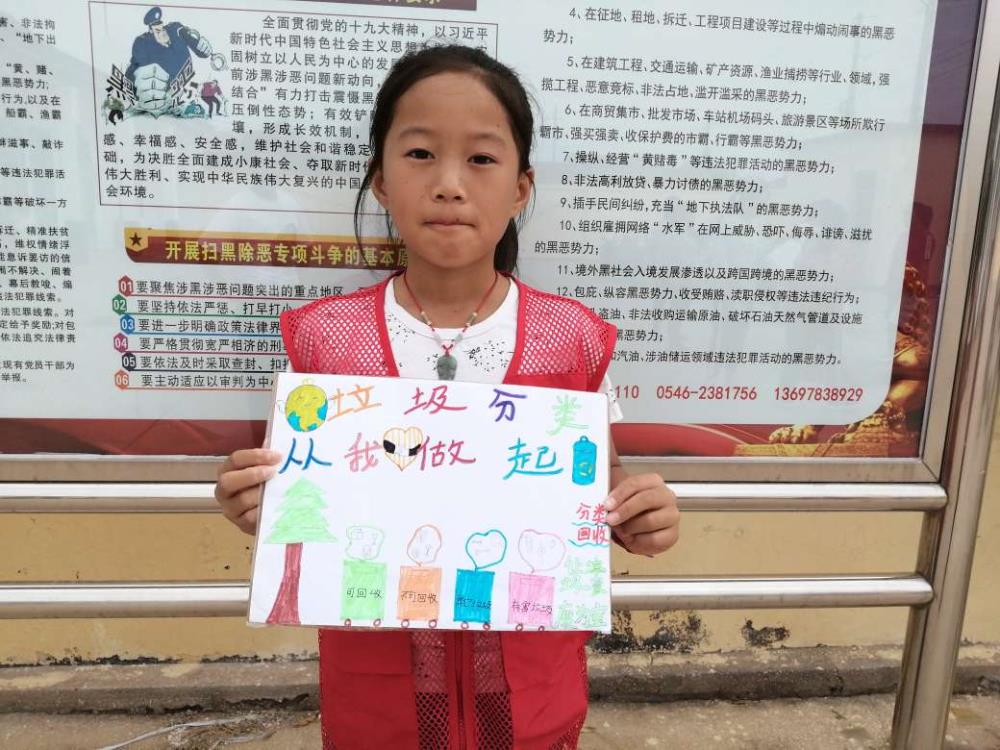 害、非法拘
、“地下出
“黄、赌、
黑恶势力;
行为,以及在
船霸、渔霸
衅滋事、敲诈
等违法犯罪活
霸等破坏一方
全面贯彻党的十九大精神,以习近平
新时代中国特色社会主义思想
固树立以人民为中心的发
前涉黑涉恶问题新动向,
结合”有力打击震慑黑
压倒性态势;有效铲
壤,形成长效机制,
感、幸福感、安全感,维护社会和谐稳定
础,为决胜全面建成小康社会、夺取新时代
伟大胜利、实现中华民族伟大复兴的中国
会环境。
开展扫黑除恶专项斗争的基本原
01 要聚焦涉黑涉恶问题突出的重点地区
02 要坚持依法严惩、打早打小
03 要进一步明确政策法律界
04 要严格贯彻宽严相济的刑
05 要依法及时采取查封、扣押
06 要主动适应以审判为中心
4、在征地、租地、拆迁、工程项目建设等过程中煽动闹事的黑恶
势力;
5、在建筑工程、交通运输、矿产资源、渔业捕捞等行业、领域,强
揽工程、恶意竞标、非法占地、滥开滥采的黑恶势力;
6、在商贸集市、批发市场、车站机场码头、旅游景区等场所欺行
霸市、强买强卖、收保护费的市霸、行霸等黑恶势力;
7、操纵、经营“黄赌毒”等违法犯罪活动的黑恶势力;
8、非法高利放贷、暴力讨债的黑恶势力;
9、插手民间纠纷,充当“地下执法队”的黑恶势力;
10、组织雇拥网络“水军”在网上威胁、恐吓、侮辱、诽谤、滋扰
的黑恶势力;
11、境外黑社会入境发展渗透以及跨国跨境的黑恶势力;
12、包庇、纵容黑恶势力,收受贿赂、渎职侵权等违法违纪行为;
盗油、非法收购运输原油,破坏石油天然气管道及设施
黑恶势力;
汽油、涉油储运领域违法犯罪活动的黑恶势力。
110 0546-2381756 13697838929
垃圾分类
从我做起
分类
回收
可回收
不可回收
有害垃圾